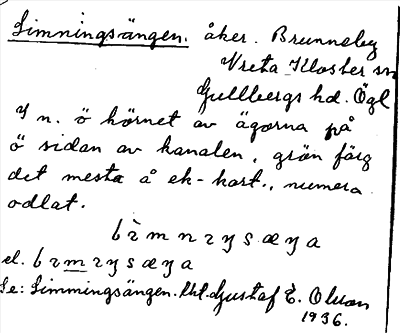 Simningsängen. åker. Brunneby
Vreta Kloster sn
Gullbergs hd. Ögl
I n. ö hörnet av ägorna på
ö sidan av kanalen, grön färg
det mesta å ek-kart., numera
odlat.
el.
Se: Simmingsängen. Gustaf E. Olsson
1936.